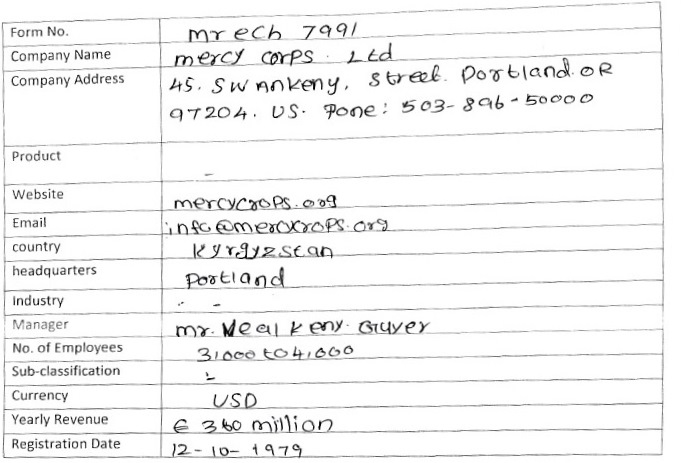 Form No. mrech 7991
Company Name mercy corps. Ltd
Company Address 45. SW Ankeny, Street. Portland. OR
97204. US. Pone: 503-896-50000
Product -
Website mercycrops.org
Email info@mercycrops.org
country kyrgyzstan
headquarters Portland
Industry -
Manager mr. Neal keny. Guyer
No. of Employees 31000 to 41000
Sub-classification -
Currency USD
Yearly Revenue € 360 million
Registration Date 12-10-1979